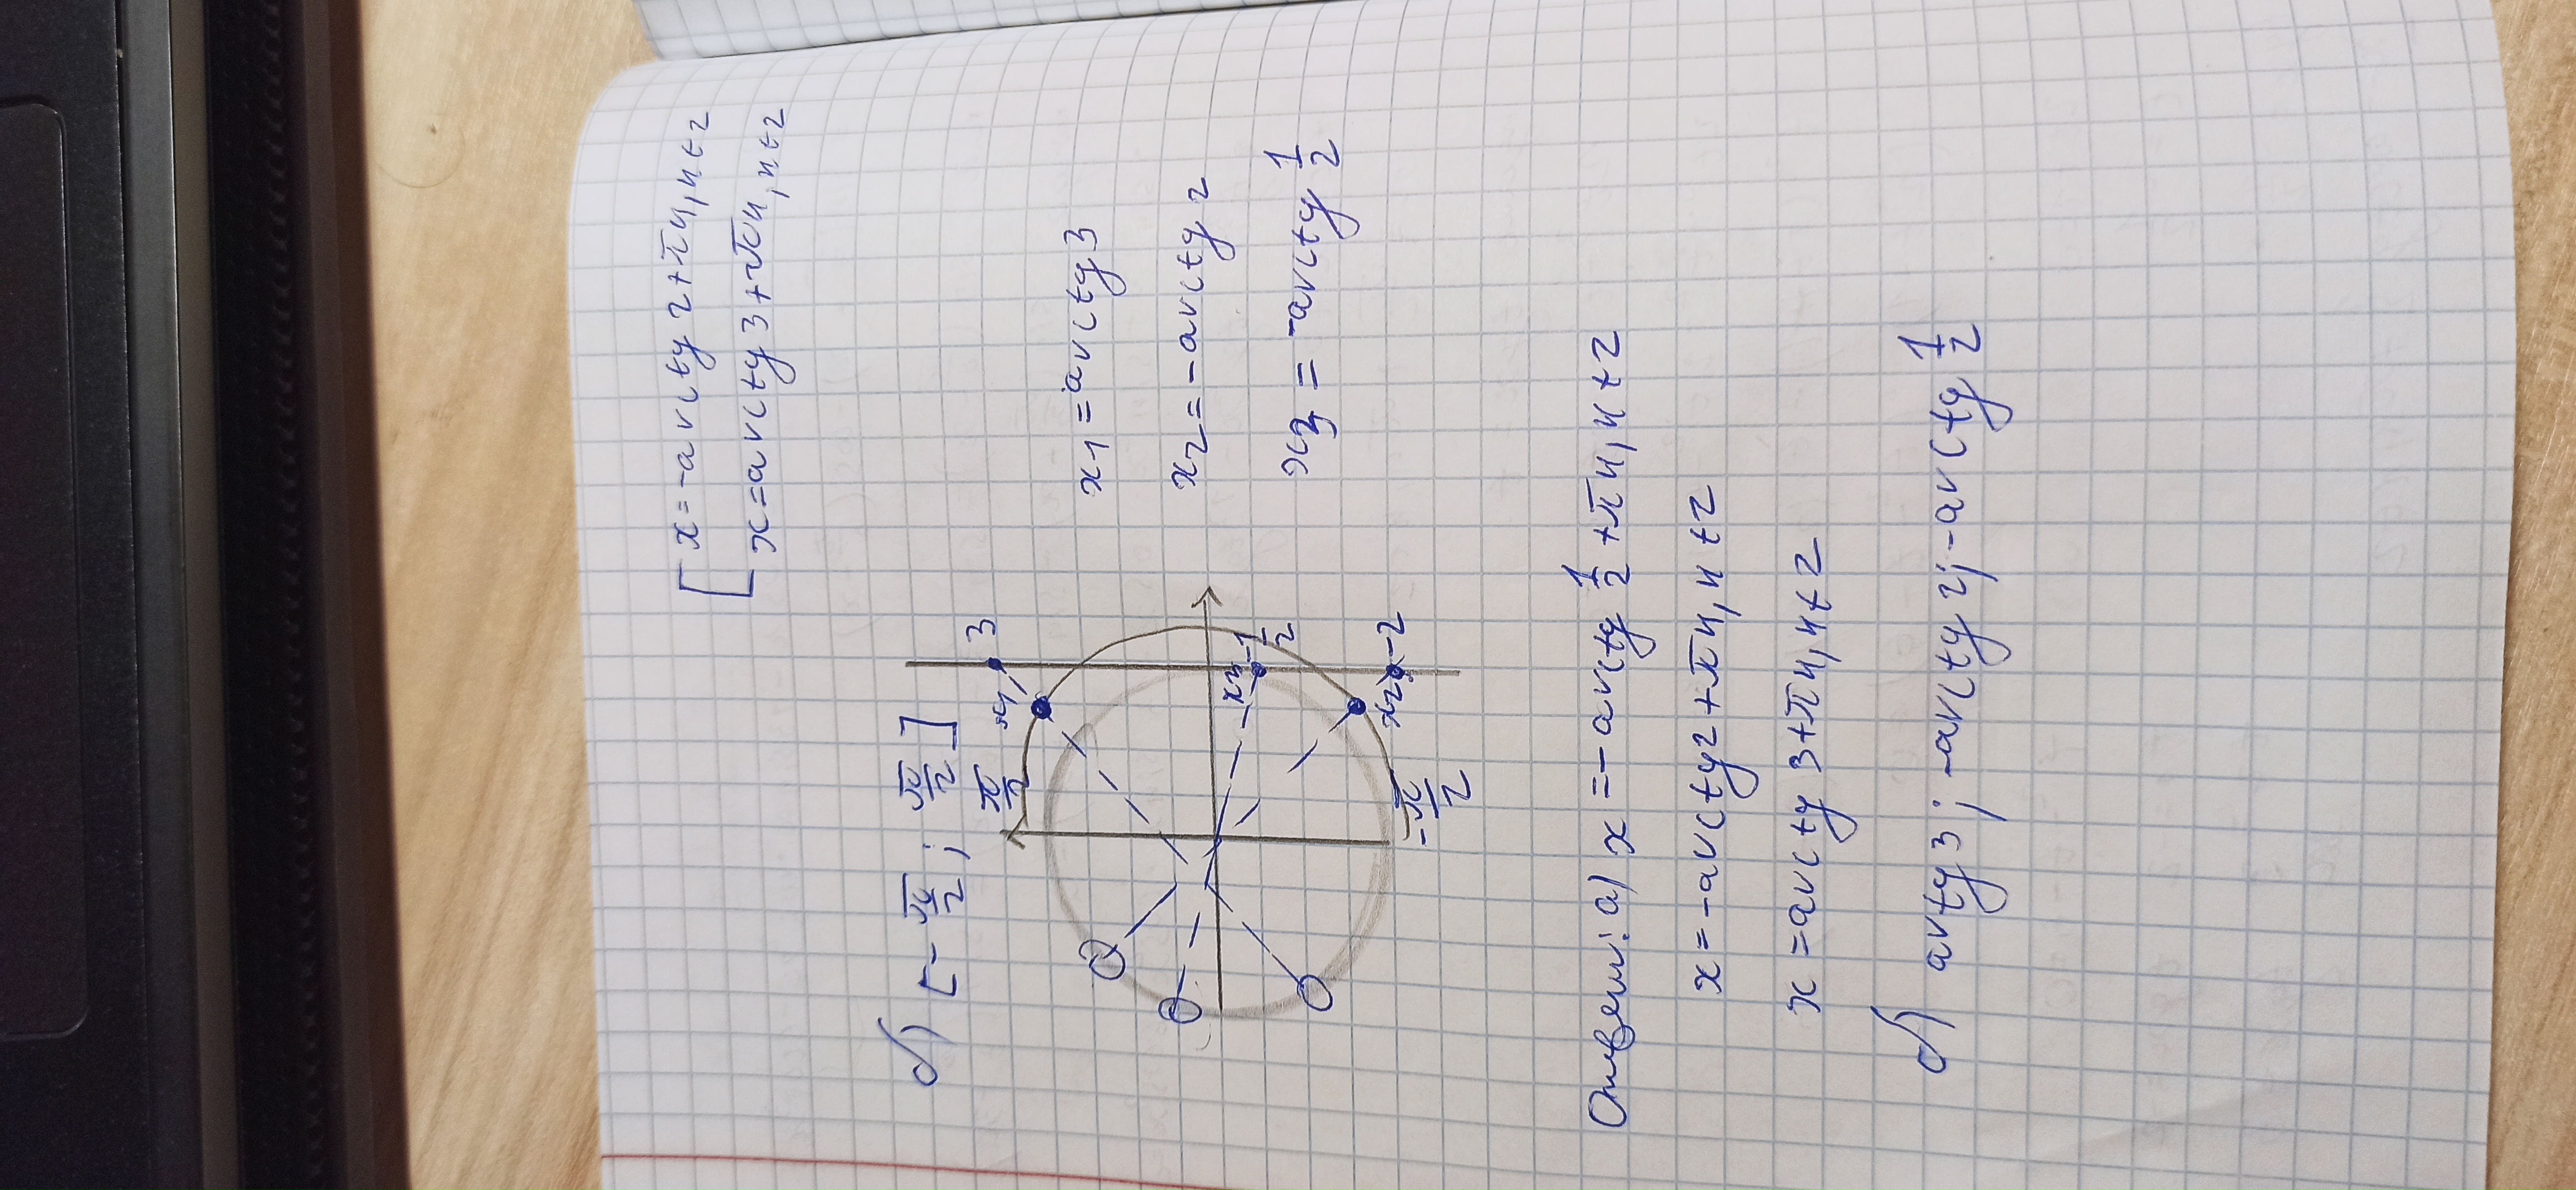 x = -arctg 2 + πn, n ∈ Z
x = arctg 3 + πn, n ∈ Z
б) [-π/2; π/2]
π/2
x1
3
x1 = arctg 3
x2 = -arctg 2
x3
-1/2
x3 = -arctg 1/2
x2
-2
-π/2
Ответ: а) x = -arctg 1/2 + πn, n ∈ Z
x = -arctg 2 + πn, n ∈ Z
x = arctg 3 + πn, n ∈ Z
б) artg 3; -arctg 2; -arctg 1/2